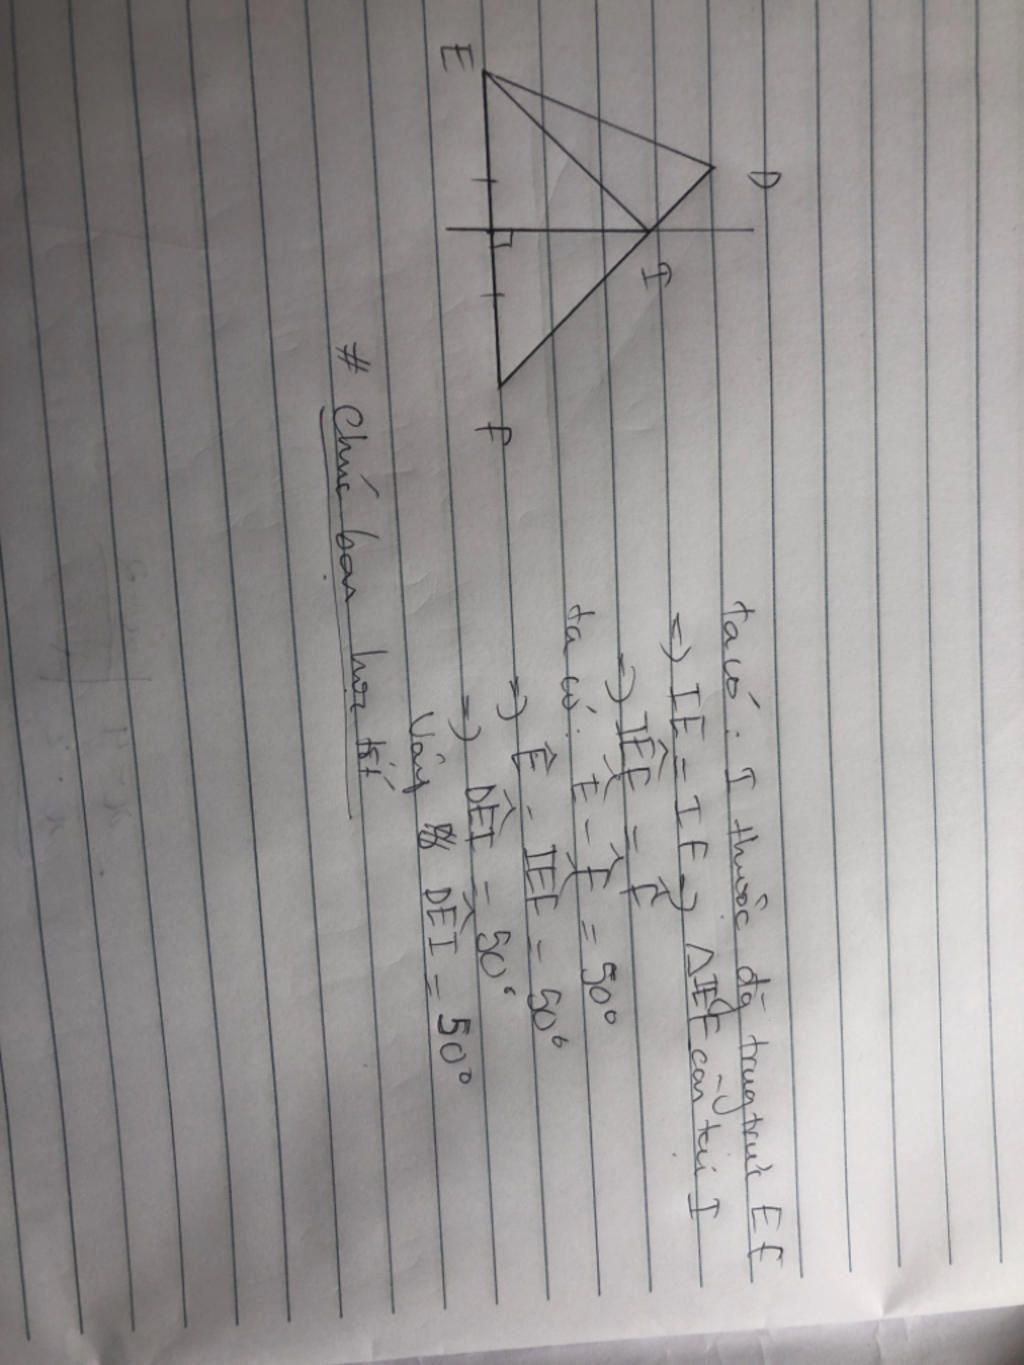 E
D
I
F
ta có: I thuộc đg trung trực EF
=) IE = IF =) ΔIEF cân tại I
=) IÊF = F̂
ta có: Ê - F̂ = 50°
=) Ê - IÊF = 50°
=) DÊI = 50°
Vậy DÊI = 50°
# Chúc bạn học tốt